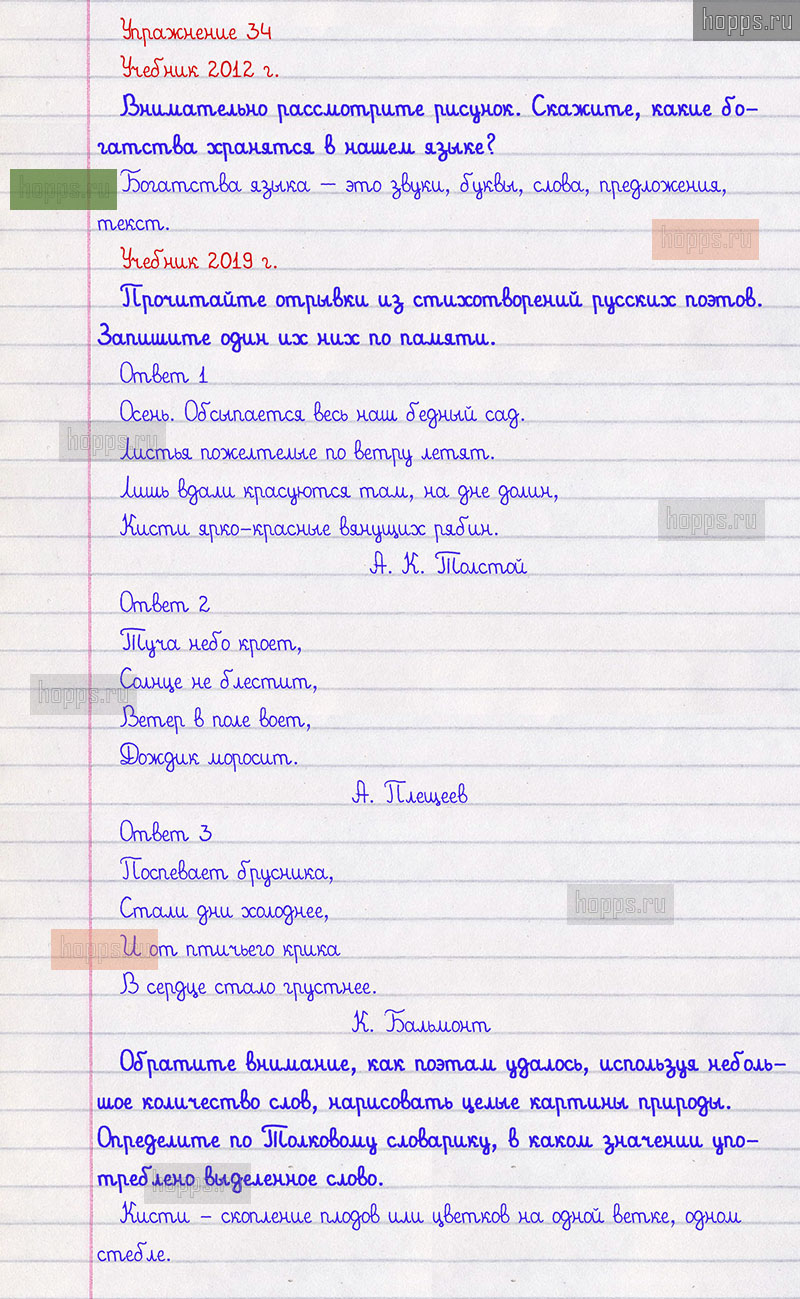 hopps.ru
Упражнение 34
Учебник 2012 г.
Внимательно рассмотрите рисунок. Скажите, какие бо-
гатства хранятся в нашем языке?
hopps.ru
Богатства языка – это звуки, буквы, слова, предложения,
текст.
hopps.ru
Учебник 2019 г.
Прочитайте отрывки из стихотворений русских поэтов.
Запишите один их них по памяти.
Ответ 1
Осень. Обсыпается весь наш бедный сад.
hopps.ru
Листья пожелтелые по ветру летят.
Лишь вдали красуются там, на дне долин,
hopps.ru
Кисти ярко-красные вянущих рябин.
А. К. Толстой
Ответ 2
Туча небо кроет,
Солнце не блестит,
hopps.ru
Ветер в поле воет,
Дождик моросит.
А. Плещеев
Ответ 3
Поспевает брусника,
Стали дни холоднее,
hopps.ru
И от птичьего крика
hopps.ru
В сердце стало грустнее.
К. Бальмонт
Обратите внимание, как поэтам удалось, используя неболь-
шое количество слов, нарисовать целые картины природы.
Определите по Толковому словарику, в каком значении упо-
треблено выделенное слово.
hopps.ru
Кисти – скопление плодов или цветков на одной ветке, одном
стебле.